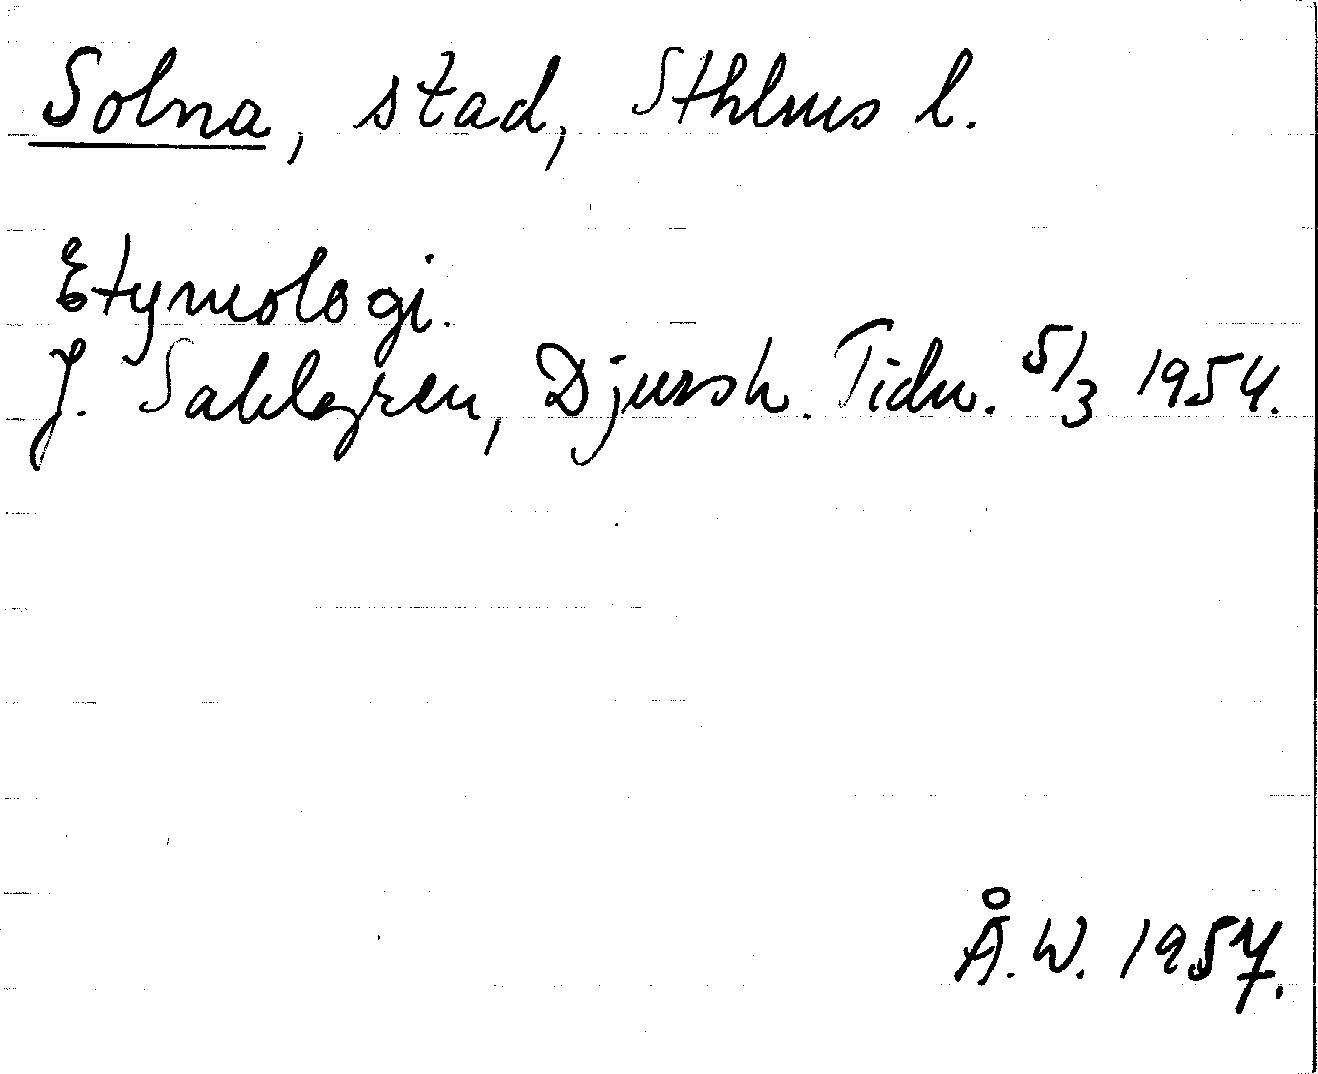 Solna, stad, Sthlms l.
Etymologi.
J. Sahlgren, Djursh. Tidn. 5/3 1954.
Å.W. 1957.